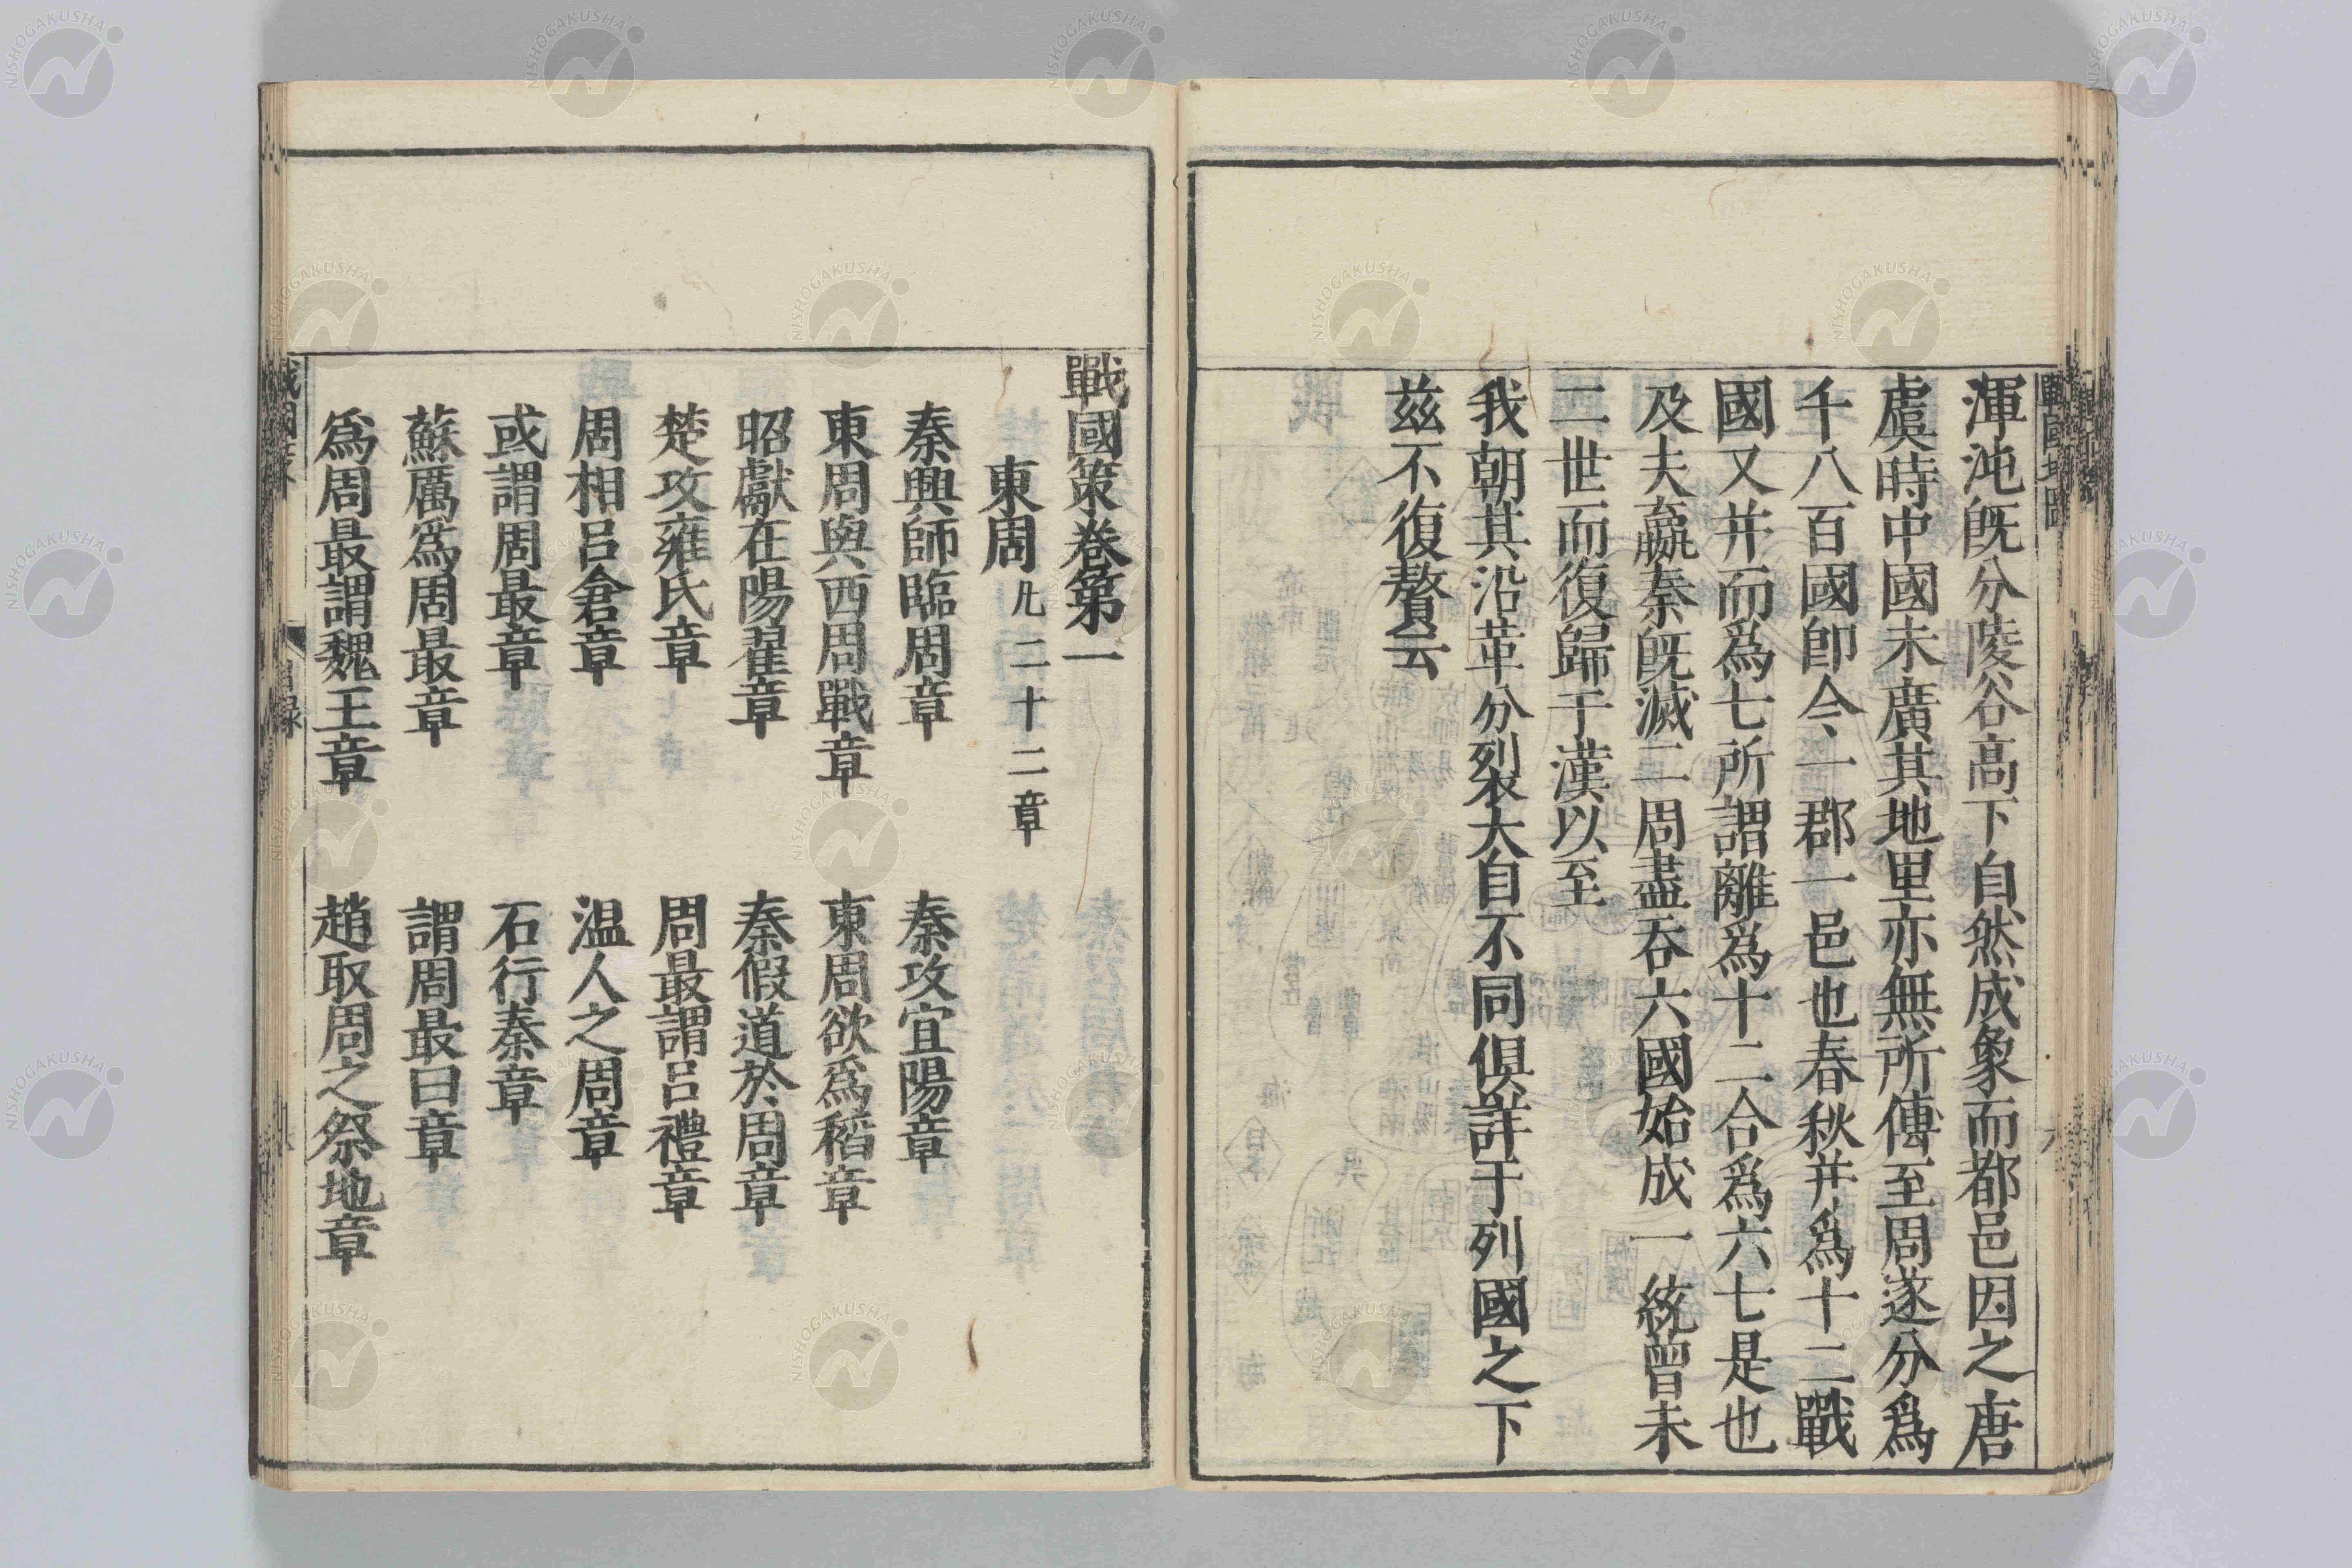 渾沌旣分陵谷高下自然成象而都邑因之唐
虞時中國未廣其地里亦無所傳至周遂分爲
千八百國卽今一郡一邑也春秋幷爲十二戰
國又幷而爲七所謂離爲十二合爲六七是也
及夫嬴秦旣滅二周盡吞六國始成一統曾未
二世而復歸于漢以至
我朝其沿革分裂大自不同俱詳于列國之下
茲不復贅云
戰國策卷第一
東周 凡二十二章
秦興師臨周章 秦攻宜陽章
東周與西周戰章 東周欲爲稻章
昭獻在陽翟章 秦假道於周章
楚攻雍氏章 周最謂呂禮章
周相呂倉章 温人之周章
或謂周最章 石行秦章
蘇厲爲周最章 謂周最曰章
爲周最謂魏王章 趙取周之祭地章
戰國策 目録
NISHOGAKUSHA